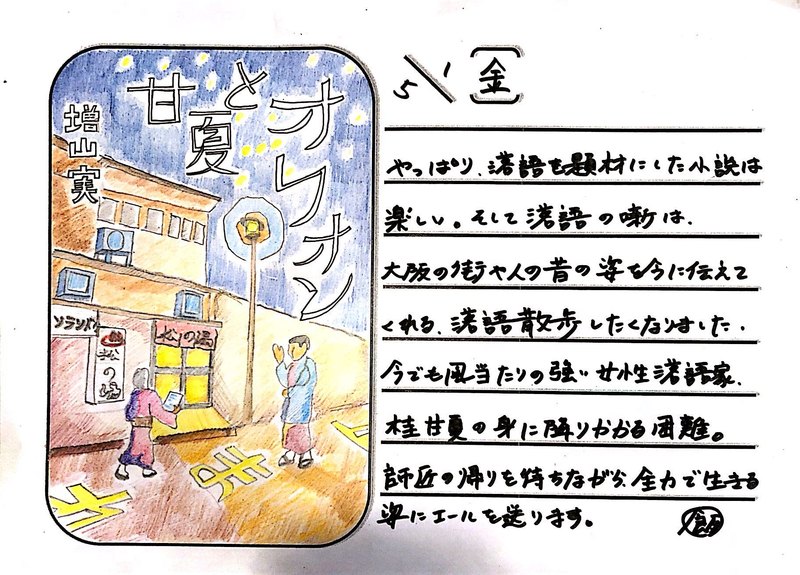 甘夏と
オリオン
増山実
ソランバ
松の湯
松の湯
止
5/1
金
やっぱり、落語を題材にした小説は
楽しい。そして落語の噺は、
大阪の街や人の昔の姿を今に伝えて
くれる、落語散歩したくなりました。
今でも風当たりの強い女性落語家、
桂甘夏の身に降りかかる困難。
師匠の帰りを待ちながら、全力で生きる
姿にエールを送ります。